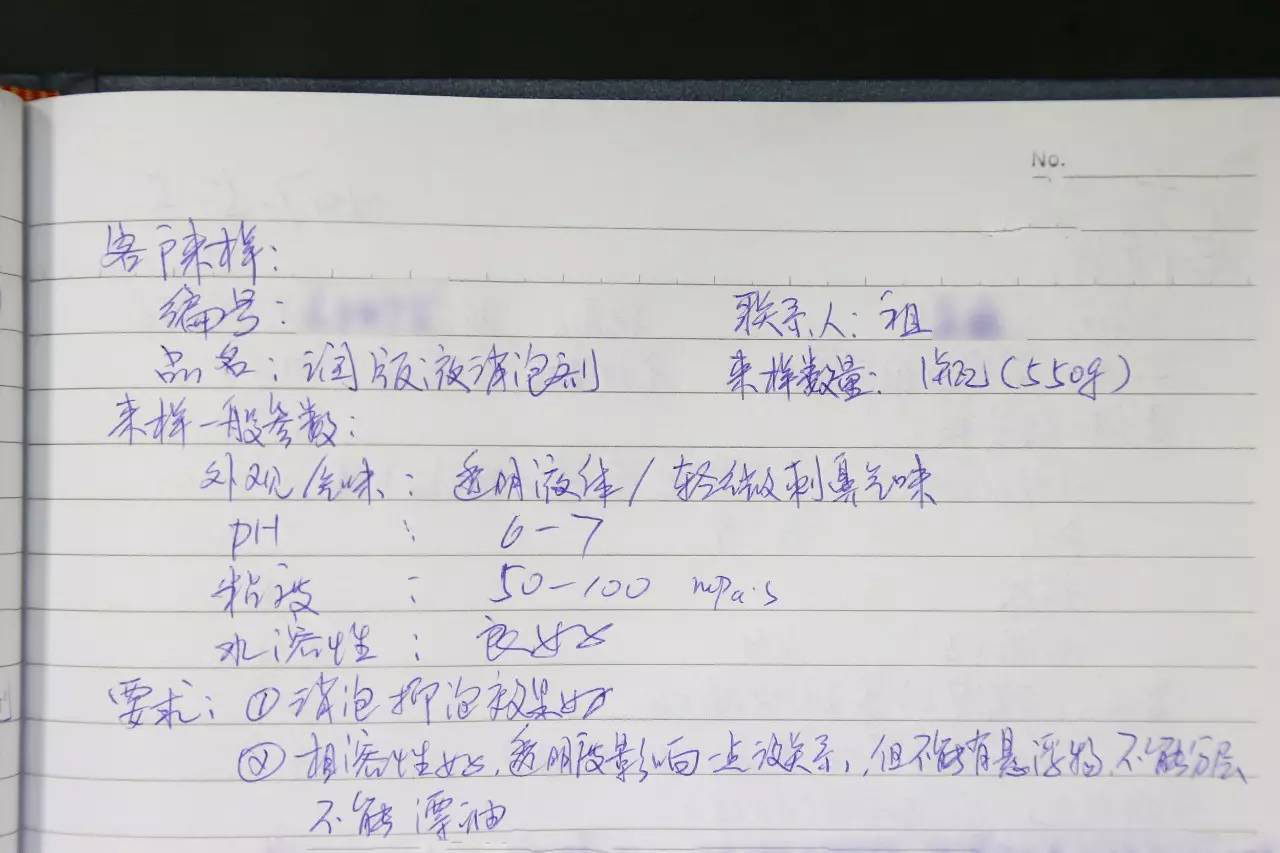 No.
客户来样:
编号: 联系人: 祖
品名: 润版液消泡剂 来样数量: 1瓶(550g)
来样一般参数:
外观/气味: 透明液体/轻微刺鼻气味
pH : 6-7
粘度 : 50-100 mPa.s
水溶性: 良好
要求: ①消泡抑泡效果好
②相溶性好,透明度影响一点没关系,但不能有悬浮物,不能分层、
不能漂油